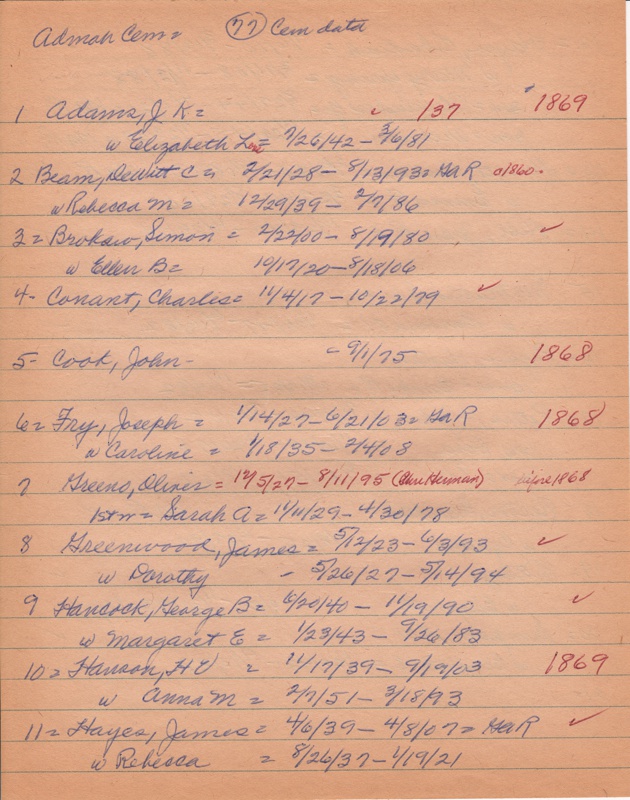 Admah Cem = 77 Cem data
1 Adams, J K = ✓ /37 1869
w Elizabeth = 7/26/42 - 3/6/81
2 Beam, DeWitt C = 2/21/28 - 8/13/93 = GAR 1860 -
w Rebecca M = 12/29/39 - 2/7/86
3 = Brokaw, Simon = 2/22/00 - 8/19/80 ✓
w Ellen B = 10/17/20 - 8/18/06
4 - Conant, Charlie = 11/4/17 - 10/22/79 ✓
5 - Cook, John - - 9/1/75 1868
6 = Fry, Joseph = 1/14/27 - 6/21/03 = GAR 1868
w Caroline = 1/18/35 - 2/4/08
7 Greeno, Oliver = 12/5/27 - 8/11/95 (Herman) 1868
1st m = Sarah A = 11/11/29 - 4/30/78
8 Greenwood, James = 5/12/23 - 6/3/93 ✓
w Dorothy - 5/26/27 - 5/14/94
9 Hancock, George B = 6/20/40 - 11/19/90 ✓
w Margaret E = 1/23/43 - 9/26/83
10 = Hanson, H V = 11/17/39 - 9/19/03 1869
w Anna M = 2/7/51 - 3/18/93
11 = Hayes, James = 4/6/39 - 4/8/07 = GAR ✓
w Rebecca = 8/26/37 - 1/19/21